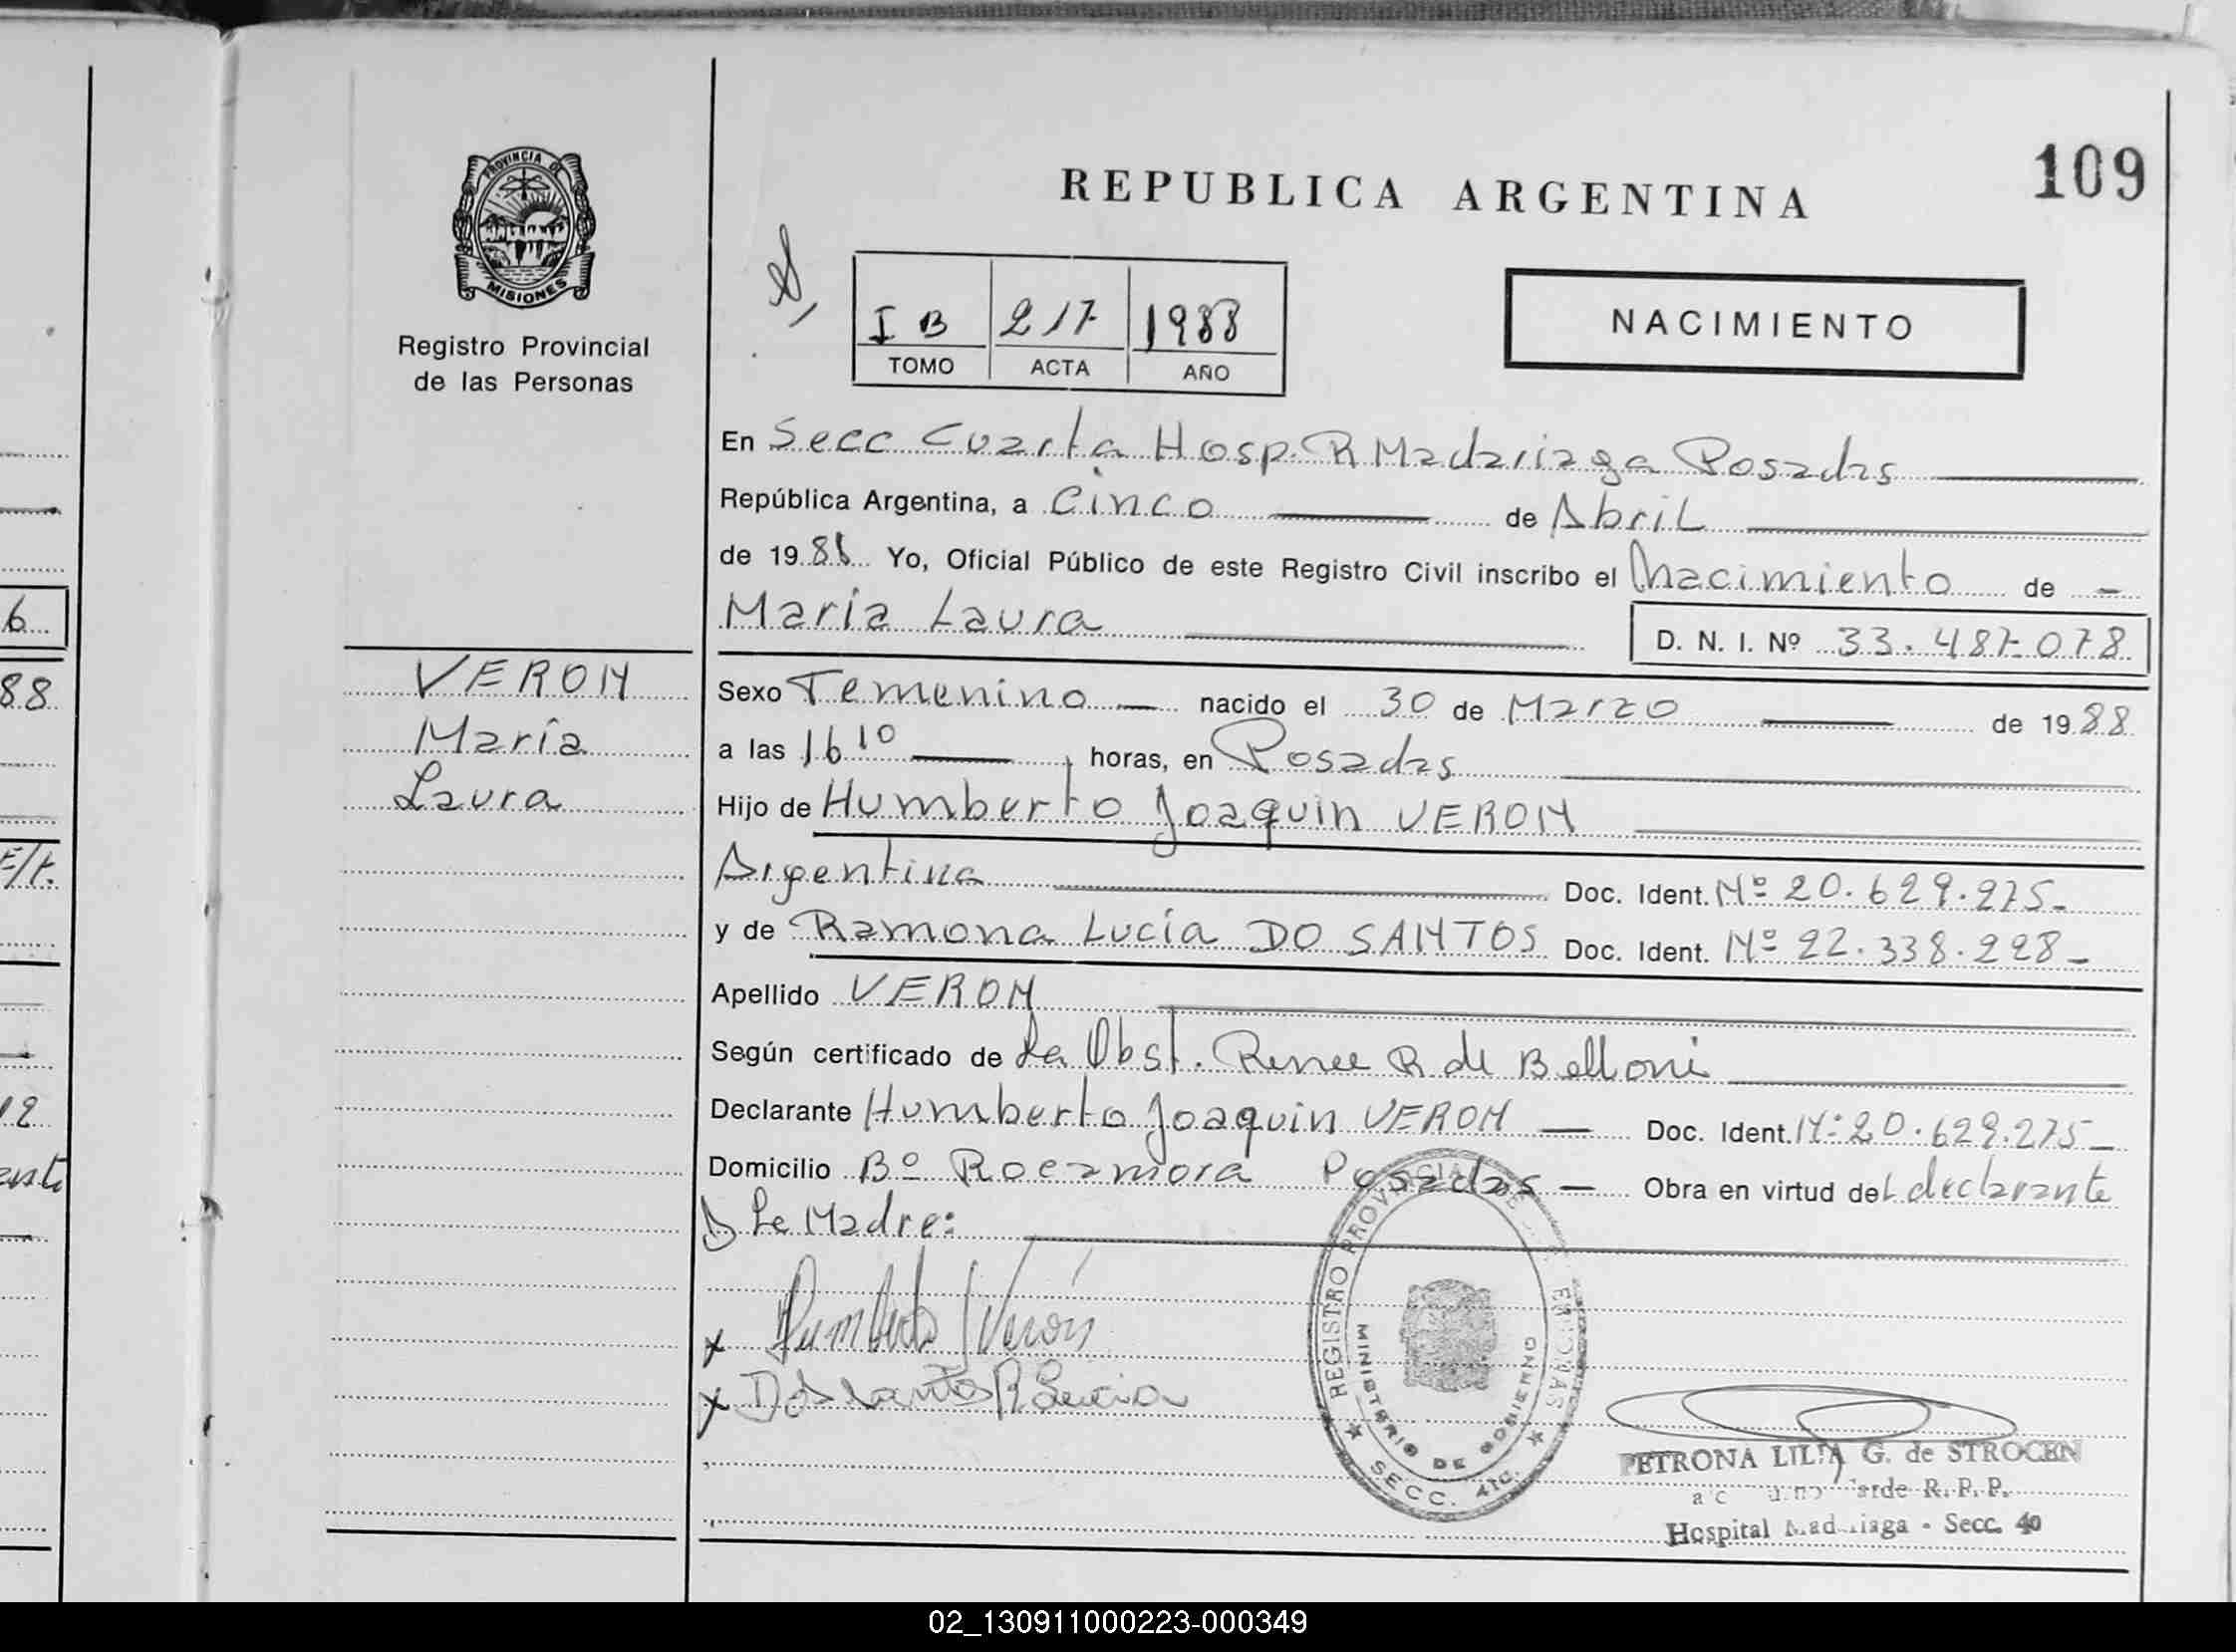 6
88
E/t.
12
PROVINCIA DE
MISIONES
Registro Provincial
de las Personas
VERON
María
Laura
109
REPUBLICA ARGENTINA
I B 217 1988
TOMO ACTA AÑO
NACIMIENTO
En Secc Cuarta Hosp. R Madariaga Posadas
República Argentina, a Cinco de Abril
de 1988 Yo, Oficial Público de este Registro Civil inscribo el Nacimiento de
María Laura D. N. I. Nº 33.487.078
Sexo Femenino nacido el 30 de Marzo de 1988
a las 16 10 horas, en Posadas
Hijo de Humberto Joaquin VERON
Argentina Doc. Ident. Nº 20.629.275-
y de Ramona Lucía DO SANTOS Doc. Ident. Nº 22.338.228-
Apellido VERON
Según certificado de La Obst. Renee R de Belloni
Declarante Humberto Joaquin VERON Doc. Ident. Nº 20.629.275-
Domicilio Bº Rocamora Posadas Obra en virtud del declarante
y La Madre:
x Humberto J Verón
x Dos Santos R Lucia
REGISTRO PROVINCIAL DE
MINISTERIO DE GOBIERNO
SECC. 4ta.
PETRONA LILIA G. de STROCEN
R. P. P.
Hospital Madariaga - Secc. 4a
02_130911000223-000349